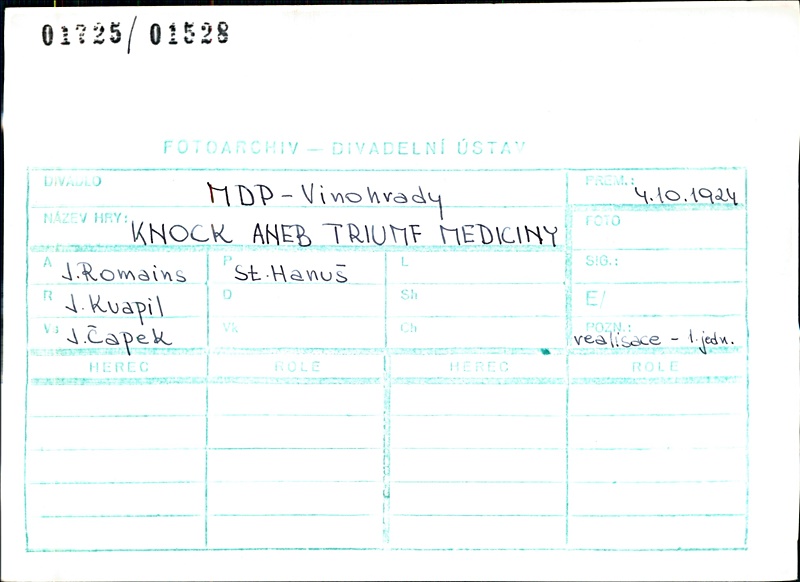 01725/ 01528
FOTOARCHIV – DIVADELNÍ ÚSTAV
DIVADLO MDP - Vinohrady PREM.: 4.10.1924
NÁZEV HRY: KNOCK ANEB TRIUMF MEDICINY FOTO
A J. Romains P St. Hanuš L SIG.:
R J. Kvapil O Sh E/
Vs J. Čapek Vk Ch POZN.: realisace - 1. jedn.
HEREC ROLE HEREC ROLE